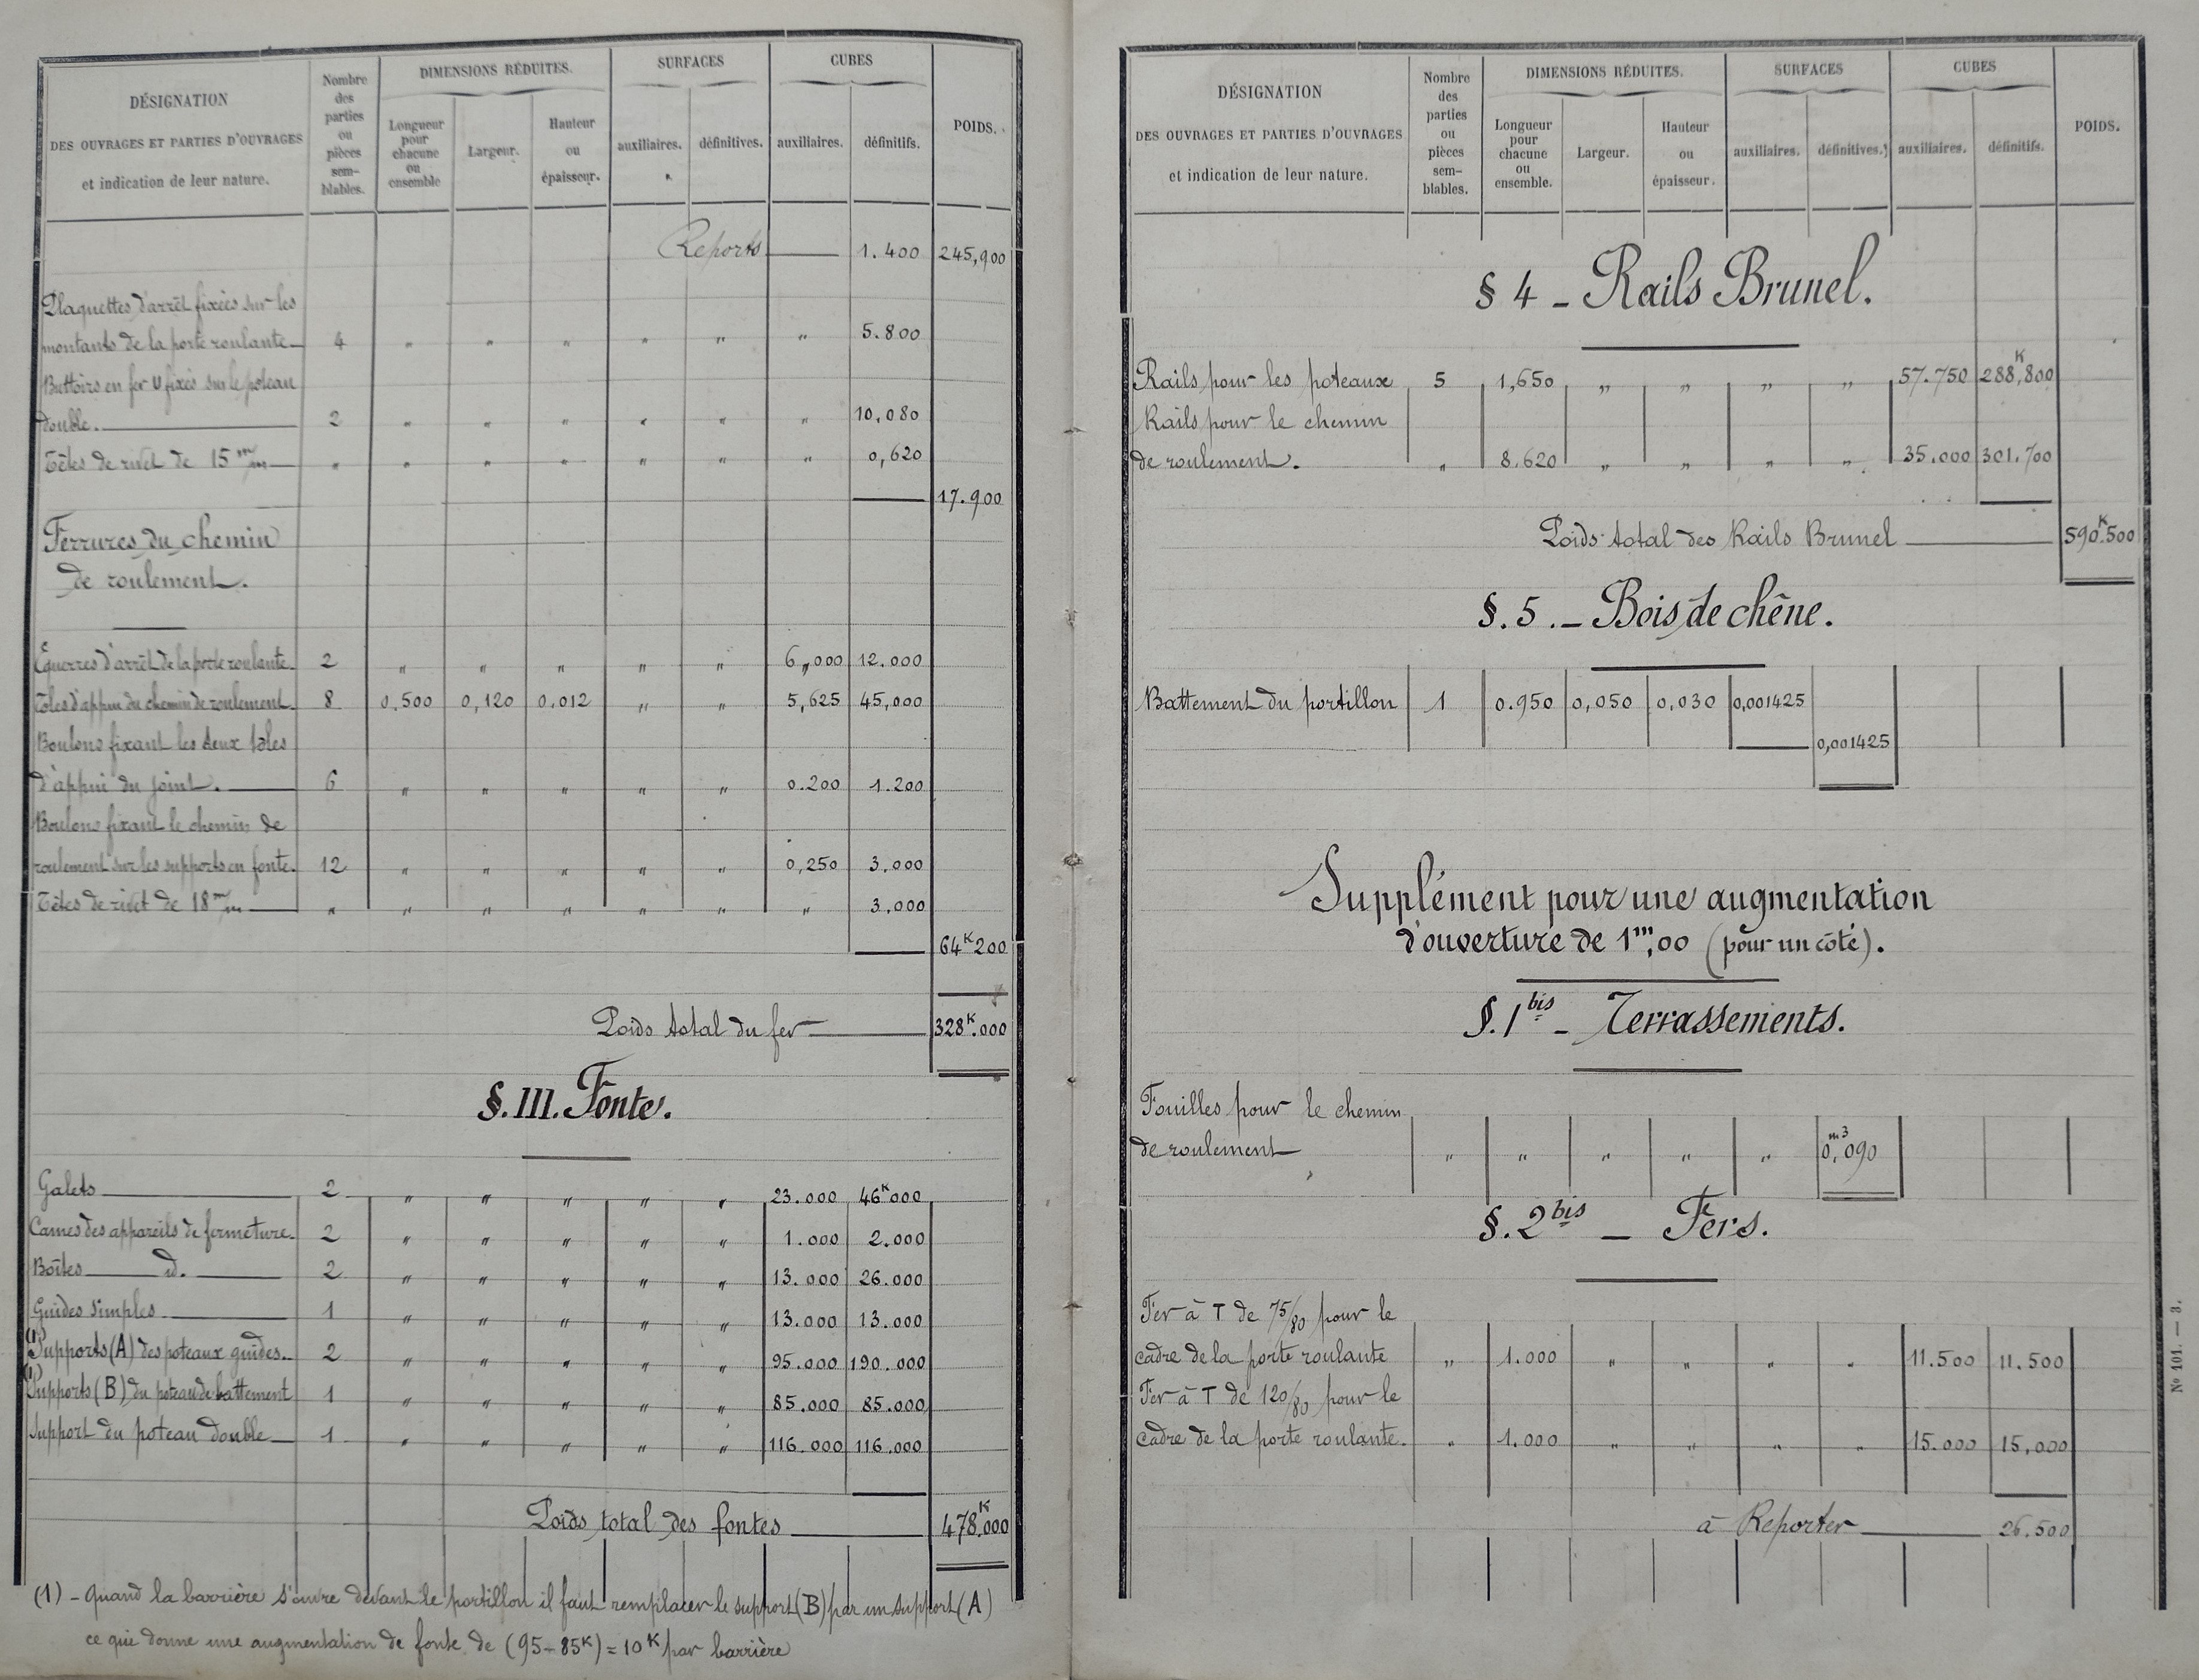 DÉSIGNATION
DES OUVRAGES ET PARTIES D'OUVRAGES
et indication de leur nature.
Nombre
des
parties
ou
pièces
sem-
blables.
DIMENSIONS RÉDUITES.
Longueur
pour
chacune
ou
ensemble
Largeur.
Hauteur
ou
épaisseur.
SURFACES
auxiliaires.
définitives.
CUBES
auxiliaires.
définitifs.
POIDS.
Reports 1.400 245,900
Plaquettes d'arrêt fixées sur les
montants de la porte roulante 4 " " " " " " 5.800
Buttoirs en fer U fixés sur le poteau
double. 2 " " " " " " 10,080
Têtes de rivet de 15 m/m " " " " " " " 0,620
17.900
Ferrures du chemin
de roulement.
Équerres d'arrêt de la porte roulante. 2 " " " " " 6,000 12.000
Tôles d'appui du chemin de roulement. 8 0,500 0,120 0.012 " " 5,625 45,000
Boulons fixant les deux tôles
d'appui du joint. 6 " " " " " 0.200 1.200
Boulons fixant le chemin de
roulement sur les supports en fonte. 12 " " " " " 0,250 3.000
Têtes de rivet de 18 m/m " " " " " " " 3,000
64K200
Poids total du fer 328K.000
§. III. Fonte.
Galets 2 " " " " " 23.000 46K000
Cames des appareils de fermeture. 2 " " " " " 1.000 2.000
Boîtes d. 2 " " " " " 13.000 26.000
Guides simples 1 " " " " " 13.000 13.000
(1) Supports (A) des poteaux guides. 2 " " " " " 95.000 190.000
(1) Supports (B) du poteau de battement 1 " " " " " 85.000 85.000
Support du poteau double 1 " " " " " 116.000 116.000
Poids total des fontes 478K,000
(1) - Quand la barrière s'ouvre devant le portillon il faut remplacer le support (B) par un support (A)
ce qui donne une augmentation de fonte de (95-85K) = 10K par barrière
DÉSIGNATION
DES OUVRAGES ET PARTIES D'OUVRAGES
et indication de leur nature.
Nombre
des
parties
ou
pièces
sem-
blables.
DIMENSIONS RÉDUITES.
Longueur
pour
chacune
ou
ensemble.
Largeur.
Hauteur
ou
épaisseur.
SURFACES
auxiliaires.
définitives.
CUBES
auxiliaires.
définitifs.
POIDS.
§ 4 - Rails Brunel.
Rails pour les poteaux 5 1,650 " " " " 57.750 288K,800
Rails pour le chemin
de roulement. " 8.620 " " " " 35.000 301.700
Poids total des Rails Brunel 590K.500
§. 5. - Bois de chêne.
Battement du portillon 1 0.950 0,050 0,030 0,001425
0,001425
Supplément pour une augmentation
d'ouverture de 1m,00 (pour un côté).
§. 1bis - Terrassements.
Fouilles pour le chemin
de roulement " " " " " 0m3,090
§. 2bis - Fers.
Fer à T de 75/80 pour le
cadre de la porte roulante " 1.000 " " " " 11.500 11.500
Fer à T de 120/80 pour le
cadre de la porte roulante. " 1.000 " " " " 15.000 15,000
à Reporter 26.500
N° 101. — 3.